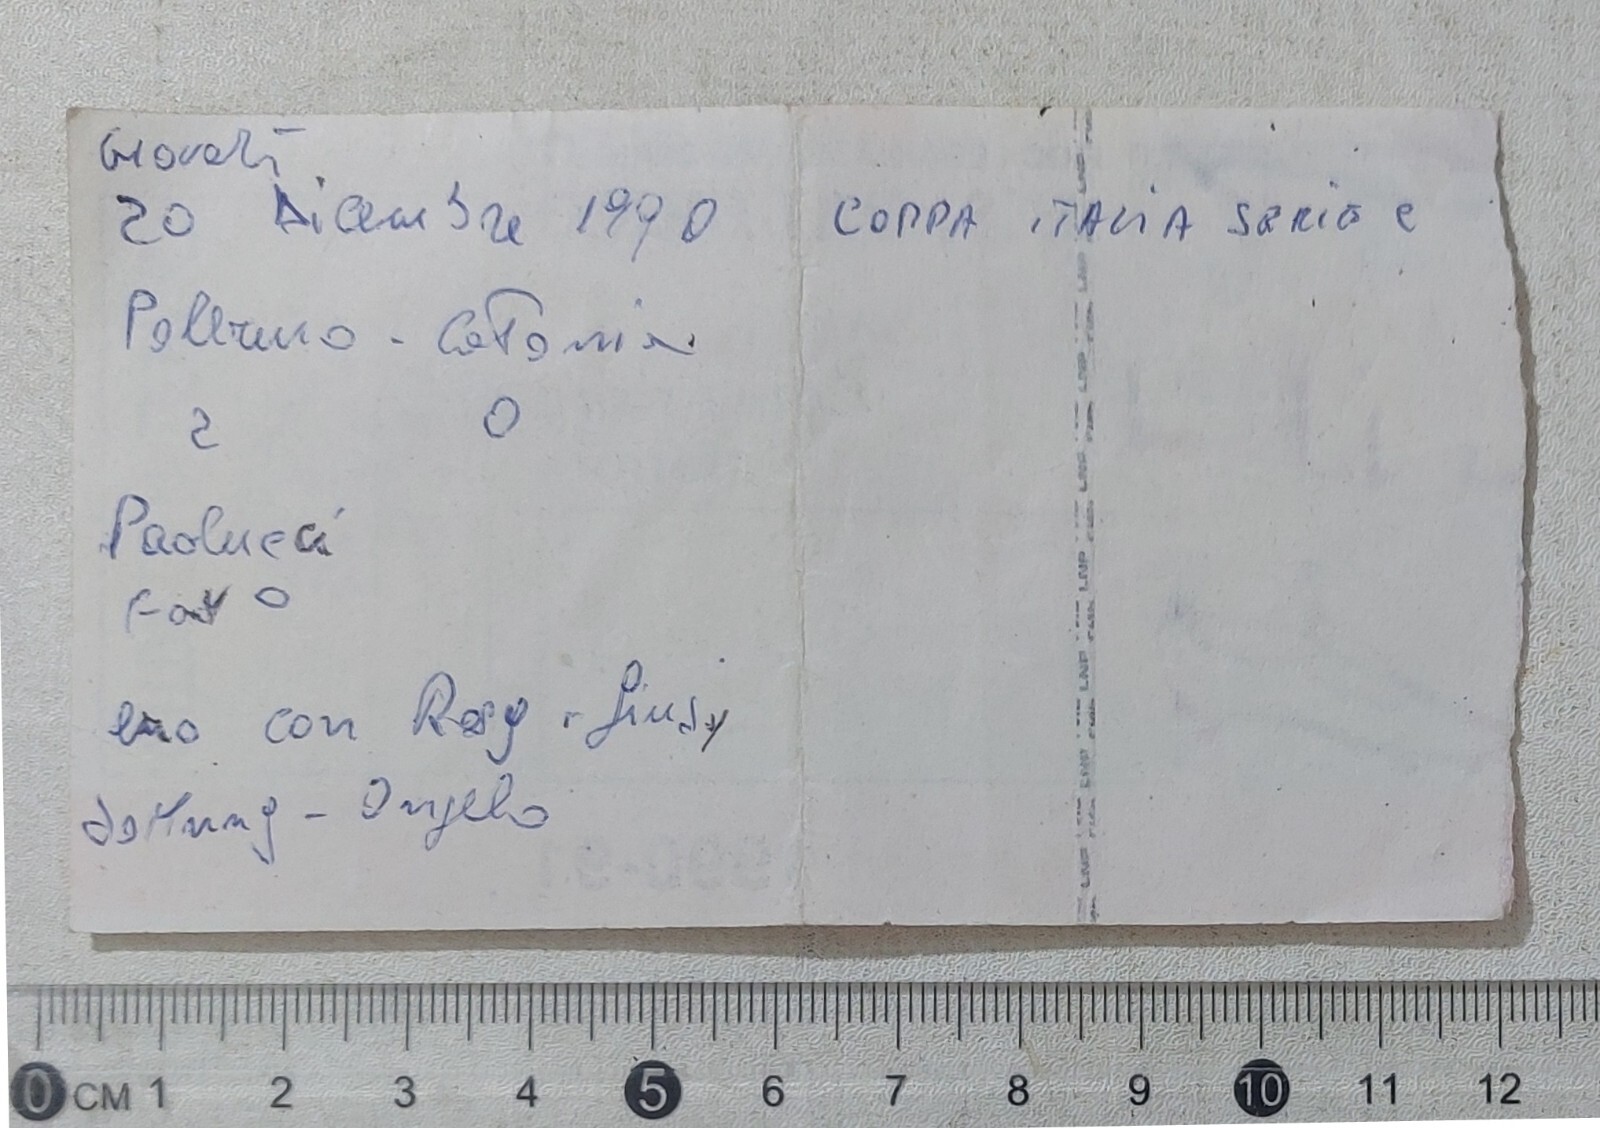 Giovedì
20 Dicembre 1990
COPPA iTALiA SERiE C
Palermo - Catania
2 0
Paolucci
Favo
ero con Rosy - Giusy
- Angelo
LNP LNP LNP LNP LNP LNP
0 CM 1 2 3 4 5 6 7 8 9 10 11 12